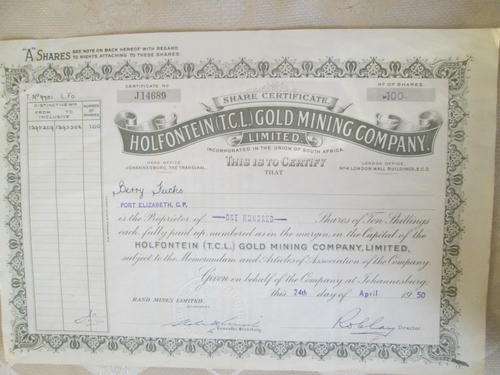 "A" SHARES SEE NOTE ON BACK HEREOF WITH REGARD
TO RIGHTS ATTACHING TO THESE SHARES
CERTIFICATE NO.
J14689
Nº OF SHARES
-100-
SHARE CERTIFICATE
HOLFONTEIN (T.C.L.) GOLD MINING COMPANY,
LIMITED.
INCORPORATED IN THE UNION OF SOUTH AFRICA.
DISTINCTIVE Nos
FROM TO
INCLUSIVE
NUMBER
OF
SHARES
100
HEAD OFFICE
JOHANNESBURG, THE TRANSVAAL.
THIS IS TO CERTIFY
THAT
LONDON OFFICE
Nº 4 LONDON WALL BUILDINGS, E.C.2.
Berry Fuchs
PORT ELIZABETH, C.P.
is the Proprietor of ONE HUNDRED Shares of Ten Shillings
each, fully paid up numbered as in the margin, in the Capital of the
HOLFONTEIN (T.C.L.) GOLD MINING COMPANY, LIMITED,
subject to the Memorandum and Articles of Association of the Company.
Given on behalf of the Company at Johannesburg,
this 24th day of April 1950
RAND MINES LIMITED,
Director